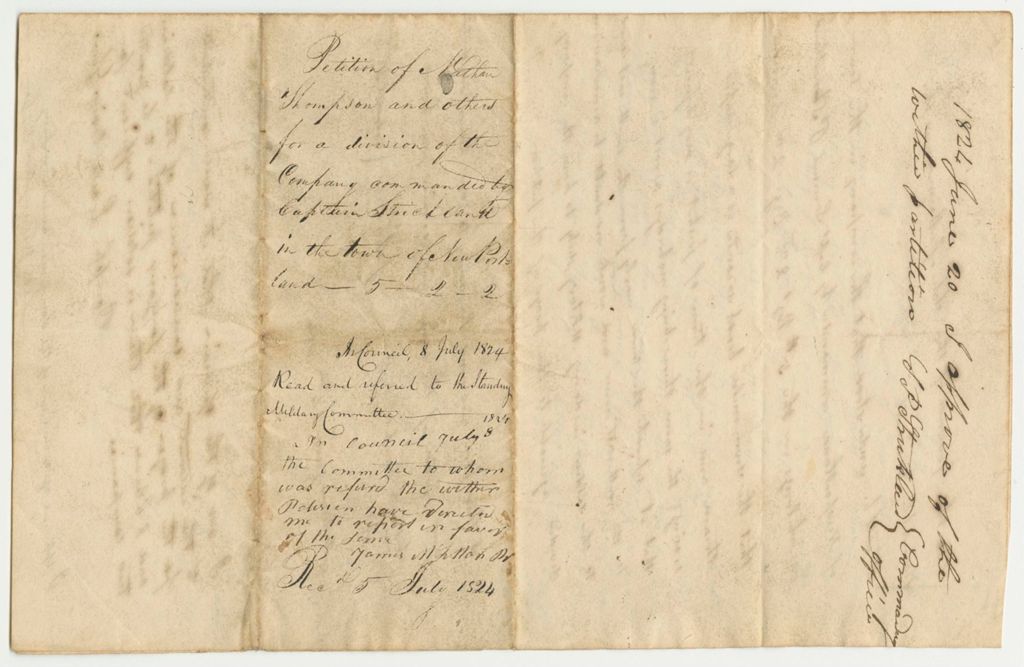 Petition of Nathan
Thompson and others
for a division of the
Company commanded by
Captain Strickland
in the town of New Port-
land — 5 — 2 — 2
In Council, 8 July 1824
Read and referred to the Standing
Military Committee. — 1824
In Council July 8
the Committee to whom
was refurd the within
Petesion have Derected
me to report in favor
of the same
James
Recd 5 July 1824
1824 June 20 I approve of the
within partittion Strickland Commanding
Officer